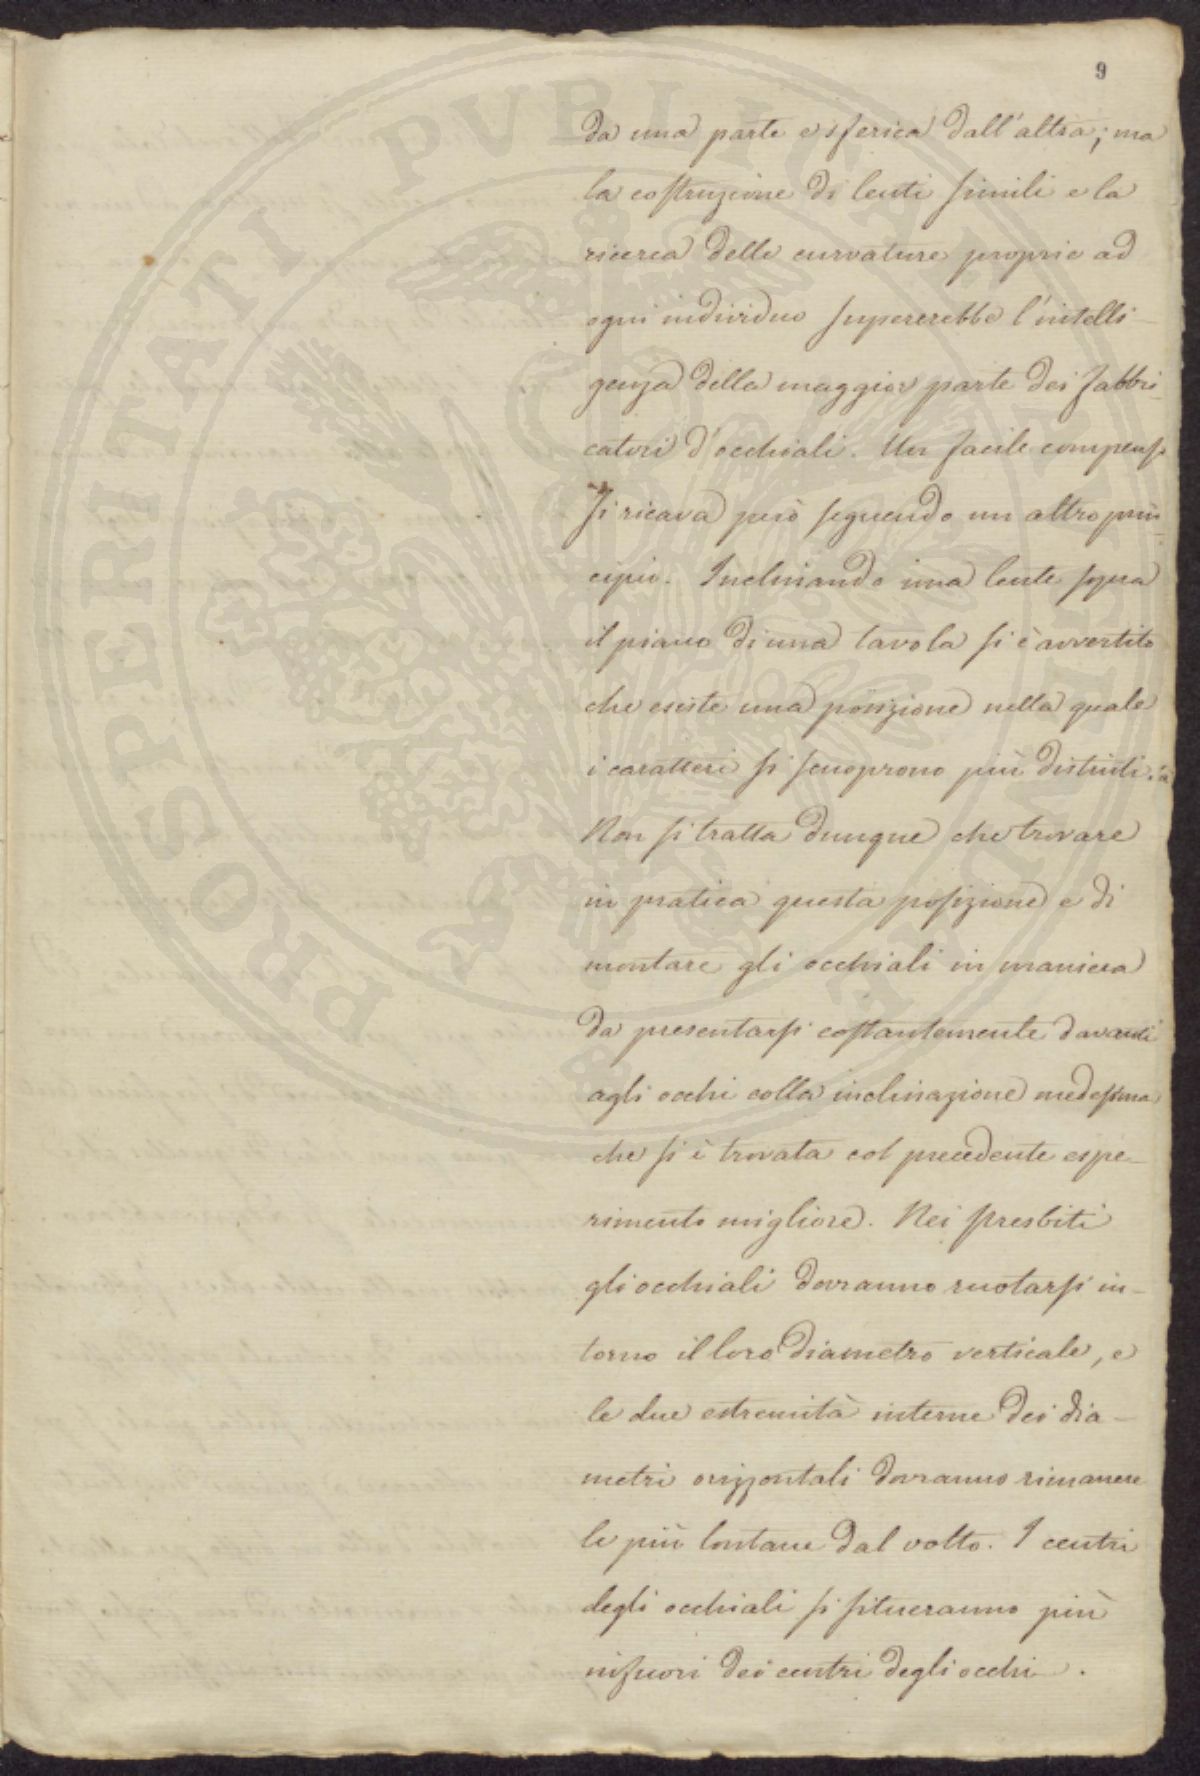 9
da una parte e sferica dall'altra; ma
la costruzione di lenti simili e la
ricerca delle curvature proprie ad
ogni individuo supererebbe l'intelli-
genza della maggior parte dei fabbri-
catori d'occhiali. Un facile compenso
si ricava però seguendo un altro prin-
cipio. Inclinando una lente sopra
il piano di una tavola si è avvertito
che esiste una posizione nella quale
i caratteri si scuoprono più distinti.
Non si tratta dunque che trovare
in pratica questa posizione e di
montare gli occhiali in maniera
da presentarsi costantemente davanti
agli occhi colla inclinazione medesima
che si è trovata col precedente espe-
rimento migliore. Nei presbiti
gli occhiali dovranno ruotarsi in-
torno il loro diametro verticale, e
le due estremità interne dei dia-
metri orizzontali dovranno rimanere
le più lontane dal volto. I centri
degli occhiali si situeranno più
infuori dei centri degli occhi.
PROSPERITATI PUBLICAE